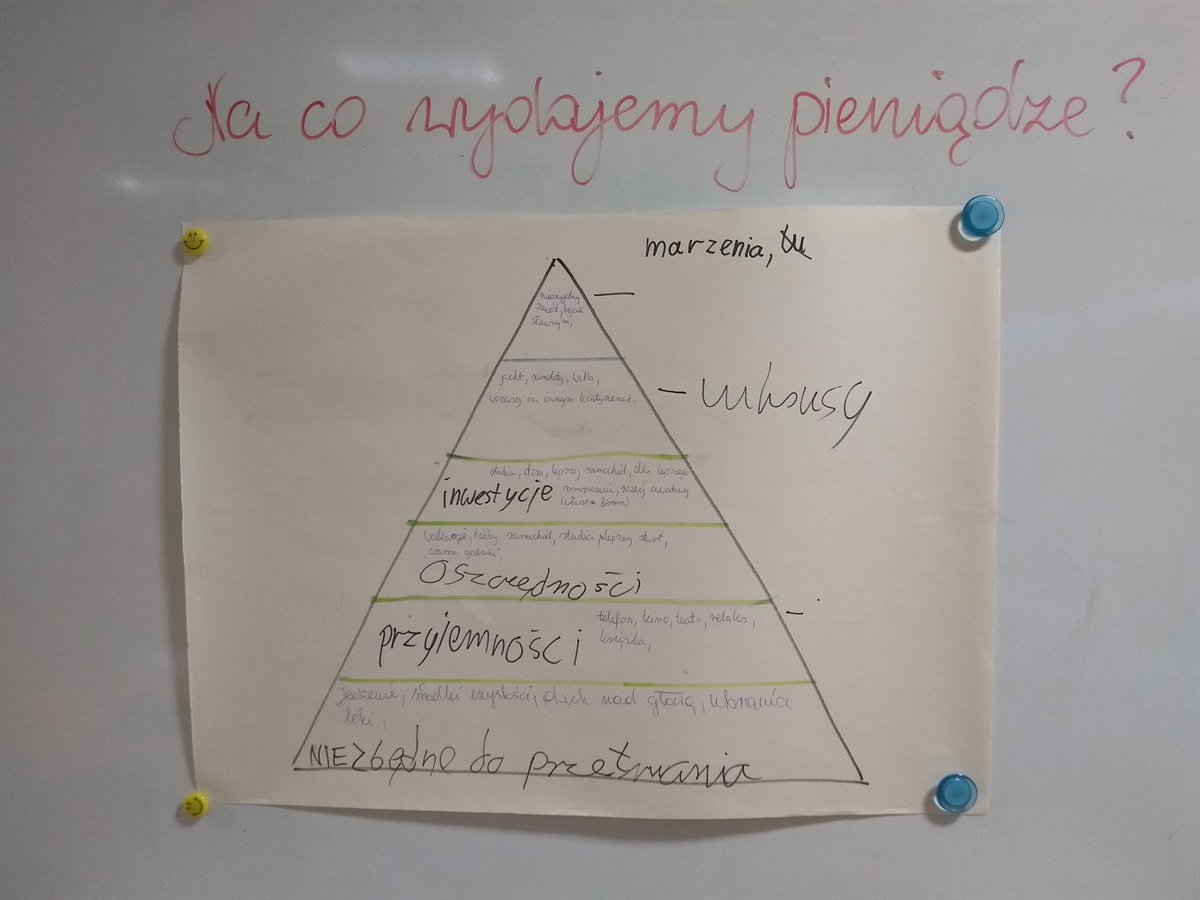 Na co wydajemy pieniądze?
marzenia,
zawód, bycie
sławnym,
jacht, samoloty, willa,
wczasy na innym kontynencie.
luksusy
studia, dom, lepszy samochód, dla lepszego
inwestycje
rozwój zawodowy
(własna firma)
wakacje, hobby, samochód, studia, lepszy start,
"czarna godzina",
Oszczędności
telefon, kino, teatr, relaks,
książka,
przyjemności
jedzenie, środki czystości, dach nad głową, ubrania
leki,
NIEZbędne do przetrwania